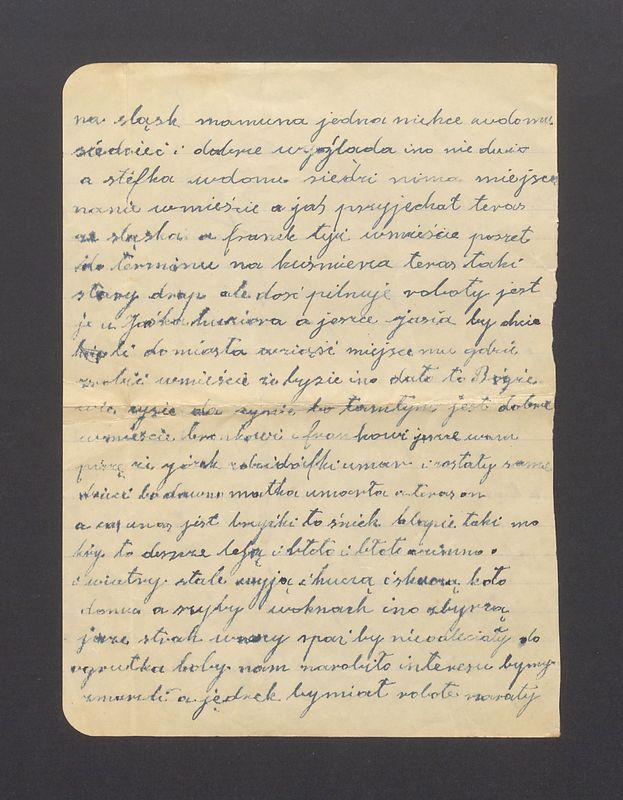 na sląsk mamuna jedna nichce wdoma
siedzieć i dobrze wyglada ino nie duzo
a stefka wdomu siedzi nima miejsca
nanie wmieście a jaś przyjechał teras
ze sląska a franek tyż wmieście poszet
do terminu na kuśnierza teras taki
stary drap ale dość pilnuje roboty jest
je u Jaśka a jeszce jasia by dzie
do miasta wziąść miejsce mu gdzie
zrobić wmieście ino dało to Bógie
da ko tamtym jest dobrze
wmieście bronkowi i frankowi jesze wam
piszę ze józek umar i zostały same
dzieci bo dawno matka umarła a teras on
a co unas jest to śniek chlapie taki mo
kry to desze leją i błoto i błoto a zimno.
i wiatry stale wyją i huczą i skuczą koło
domu a szyby woknach ino zbyrcą
jaze strah wnocy spać by nieodleciały do
ogrutka boby nam narobiło interesu bymy
zmarźli a jędrek bymiał robote naraty